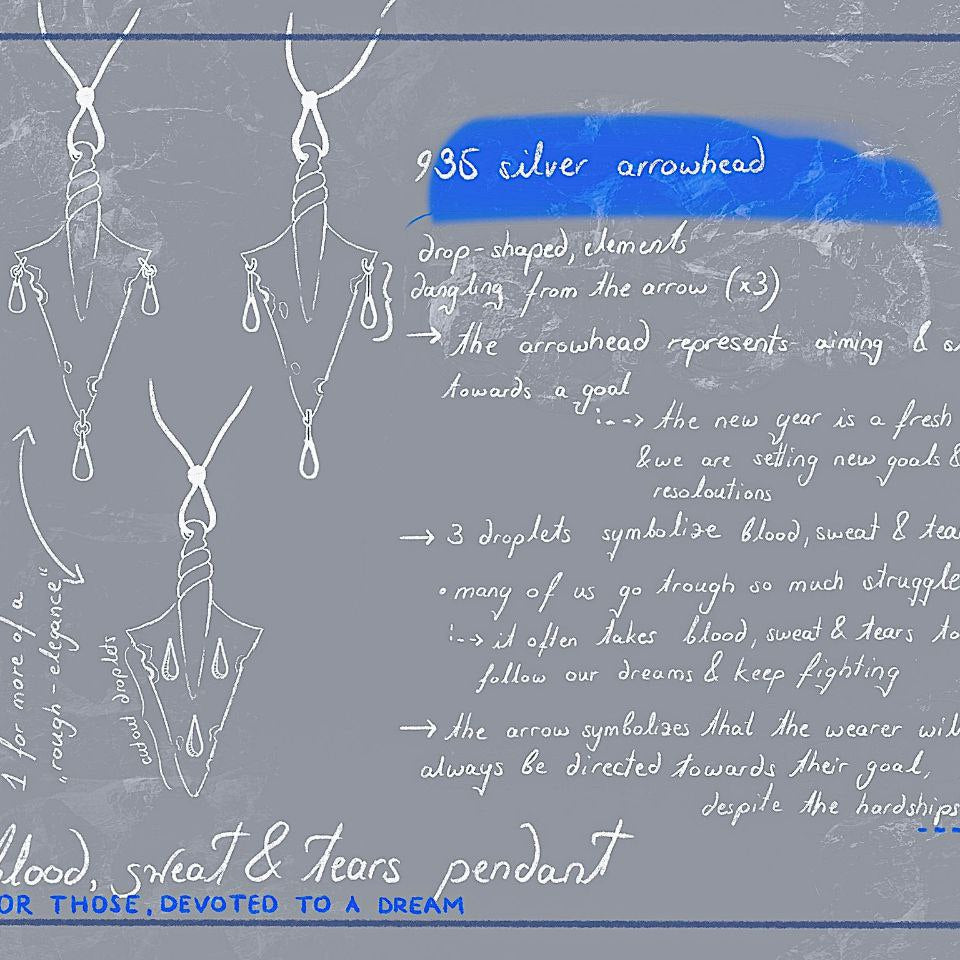 935 silver arrowhead
drop-shaped, elements
dangling from the arrow (x3)
→ the arrowhead represents aiming &
towards a goal
the new year is a fresh
& we are setting new goals &
resoloutions
→ 3 droplets symbolize blood, sweat & tea
• many of us go trough so much struggle
it often takes blood, sweat & tears to
follow our dreams & keep fighting
→ the arrow symbolizes that the wearer wil
always be directed towards their goal,
despite the hardships
1 for more of a
„rough-elegance“
cutout droplets
blood, sweat & tears pendant
OR THOSE, DEVOTED TO A DREAM